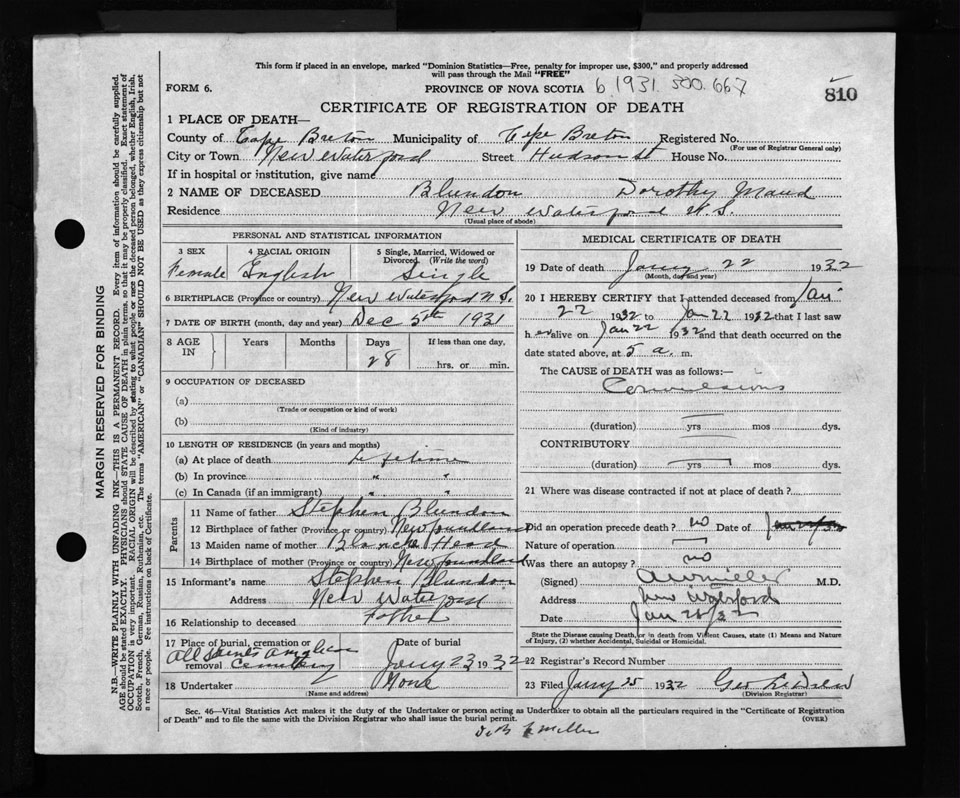 This form if placed in an envelope, marked "Dominion Statistics—Free, penalty for improper use, $300," and properly addressed
will pass through the Mail "FREE"
FORM 6.
PROVINCE OF NOVA SCOTIA 6.1931.500.667
810
CERTIFICATE OF REGISTRATION OF DEATH
1 PLACE OF DEATH—
County of Cape Breton Municipality of Cape Breton Registered No.
(For use of Registrar General only)
City or Town New Waterford Street Hudson St House No.
If in hospital or institution, give name
2 NAME OF DECEASED Blundon Dorothy Maud
Residence New Waterford N.S.
(Usual place of abode)
PERSONAL AND STATISTICAL INFORMATION
3 SEX Female
4 RACIAL ORIGIN English
5 Single, Married, Widowed or Divorced (Write the word) Single
6 BIRTHPLACE (Province or country) New Waterford N.S.
7 DATE OF BIRTH (month, day and year) Dec 5th 1931
8 AGE IN Years Months Days 28 If less than one day, hrs. or min.
9 OCCUPATION OF DECEASED
(a)
(Trade or occupation or kind of work)
(b)
(Kind of industry)
10 LENGTH OF RESIDENCE (in years and months)
(a) At place of death Lifetime
(b) In province " "
(c) In Canada (if an immigrant) " "
Parents
11 Name of father Stephen Blundon
12 Birthplace of father (Province or country) Newfoundland
13 Maiden name of mother Blanche Head
14 Birthplace of mother (Province or country) Newfoundland
15 Informant's name Stephen Blundon
Address New Waterford
16 Relationship to deceased Father
17 Place of burial, cremation or removal All Saints Anglican Cemetery
Date of burial Jany 23 1932
18 Undertaker None
(Name and address)
MEDICAL CERTIFICATE OF DEATH
19 Date of death Jany 22 1932
(Month, day and year)
20 I HEREBY CERTIFY that I attended deceased from Jan
22 1932 to Jan 22 1932 that I last saw
her alive on Jan 22 1932 and that death occurred on the
date stated above, at 5 a. m.
The CAUSE of DEATH was as follows:—
Convulsions
(duration) yrs mos dys.
CONTRIBUTORY
(duration) yrs mos dys.
21 Where was disease contracted if not at place of death?
Did an operation precede death? no Date of
Nature of operation
Was there an autopsy? no
(Signed) M.D.
Address New Waterford
Date Jan
State the Disease causing Death, or in death from Violent Causes, state (1) Means and Nature
of Injury, (2) whether Accidental, Suicidal or Homicidal.
22 Registrar's Record Number
23 Filed Jany 25 1932 Geo
(Division Registrar)
Sec. 46—Vital Statistics Act makes it the duty of the Undertaker or person acting as Undertaker to obtain all the particulars required in the "Certificate of Registration
of Death" and to file the same with the Division Registrar who shall issue the burial permit.
(OVER)
MARGIN RESERVED FOR BINDING
N.B.—WRITE PLAINLY WITH UNFADING INK—THIS IS A PERMANENT RECORD. Every item of information should be carefully supplied.
AGE should be stated EXACTLY. PHYSICIANS should STATE CAUSE OF DEATH in plain terms, so that it may be properly classified. Exact statement of
OCCUPATION is very important. RACIAL ORIGIN will be described by stating to what people or race the deceased person belonged, whether English, Irish,
Scotch, French, German, Russian, Ruthenian, etc. The terms "AMERICAN" or "CANADIAN" SHOULD NOT BE USED as they express citizenship but not
a race or people. Fee instructions on back of Certificate.